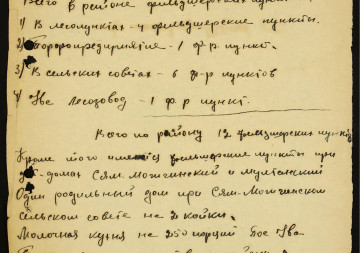 Всего в районе фельдшерских пункт
1) В лесопунктах - 4 фельдшерские пункты.
2) Торфопредприятие - 1 ф.р. пункт.
3) В сельских советах - 6 ф-р пунктов
4) Ува Лесозавод - 1 ф.р пункт.
Всего по району 12 фельдшерских пунктов
Кроме того имеются фельдшерские пункты при
домах Сям-Можгинский и Мултанский
Один родильный дом при Сям-Можгинском
сельском совете на 2 койки.
Молочная кухня на 250 порций пос Ува.